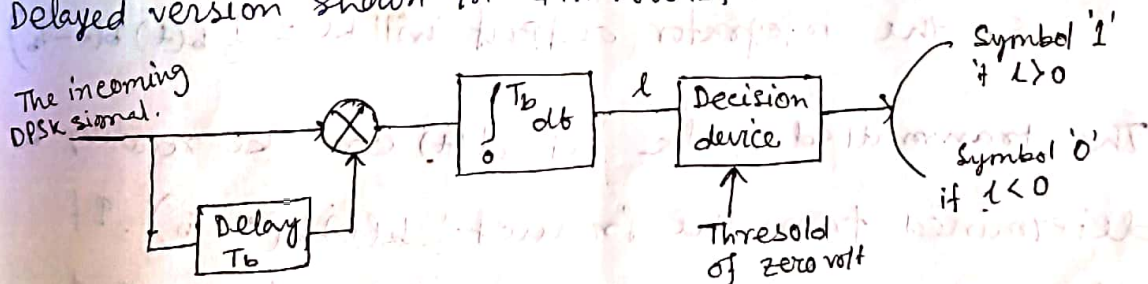 Delayed version shown
The incoming
DPSK signal.
Delay
Tb
∫ Tb dt
0
l
Decision
device
Thresold
of zero volt
Symbol '1'
if l>0
Symbol '0'
if l<0